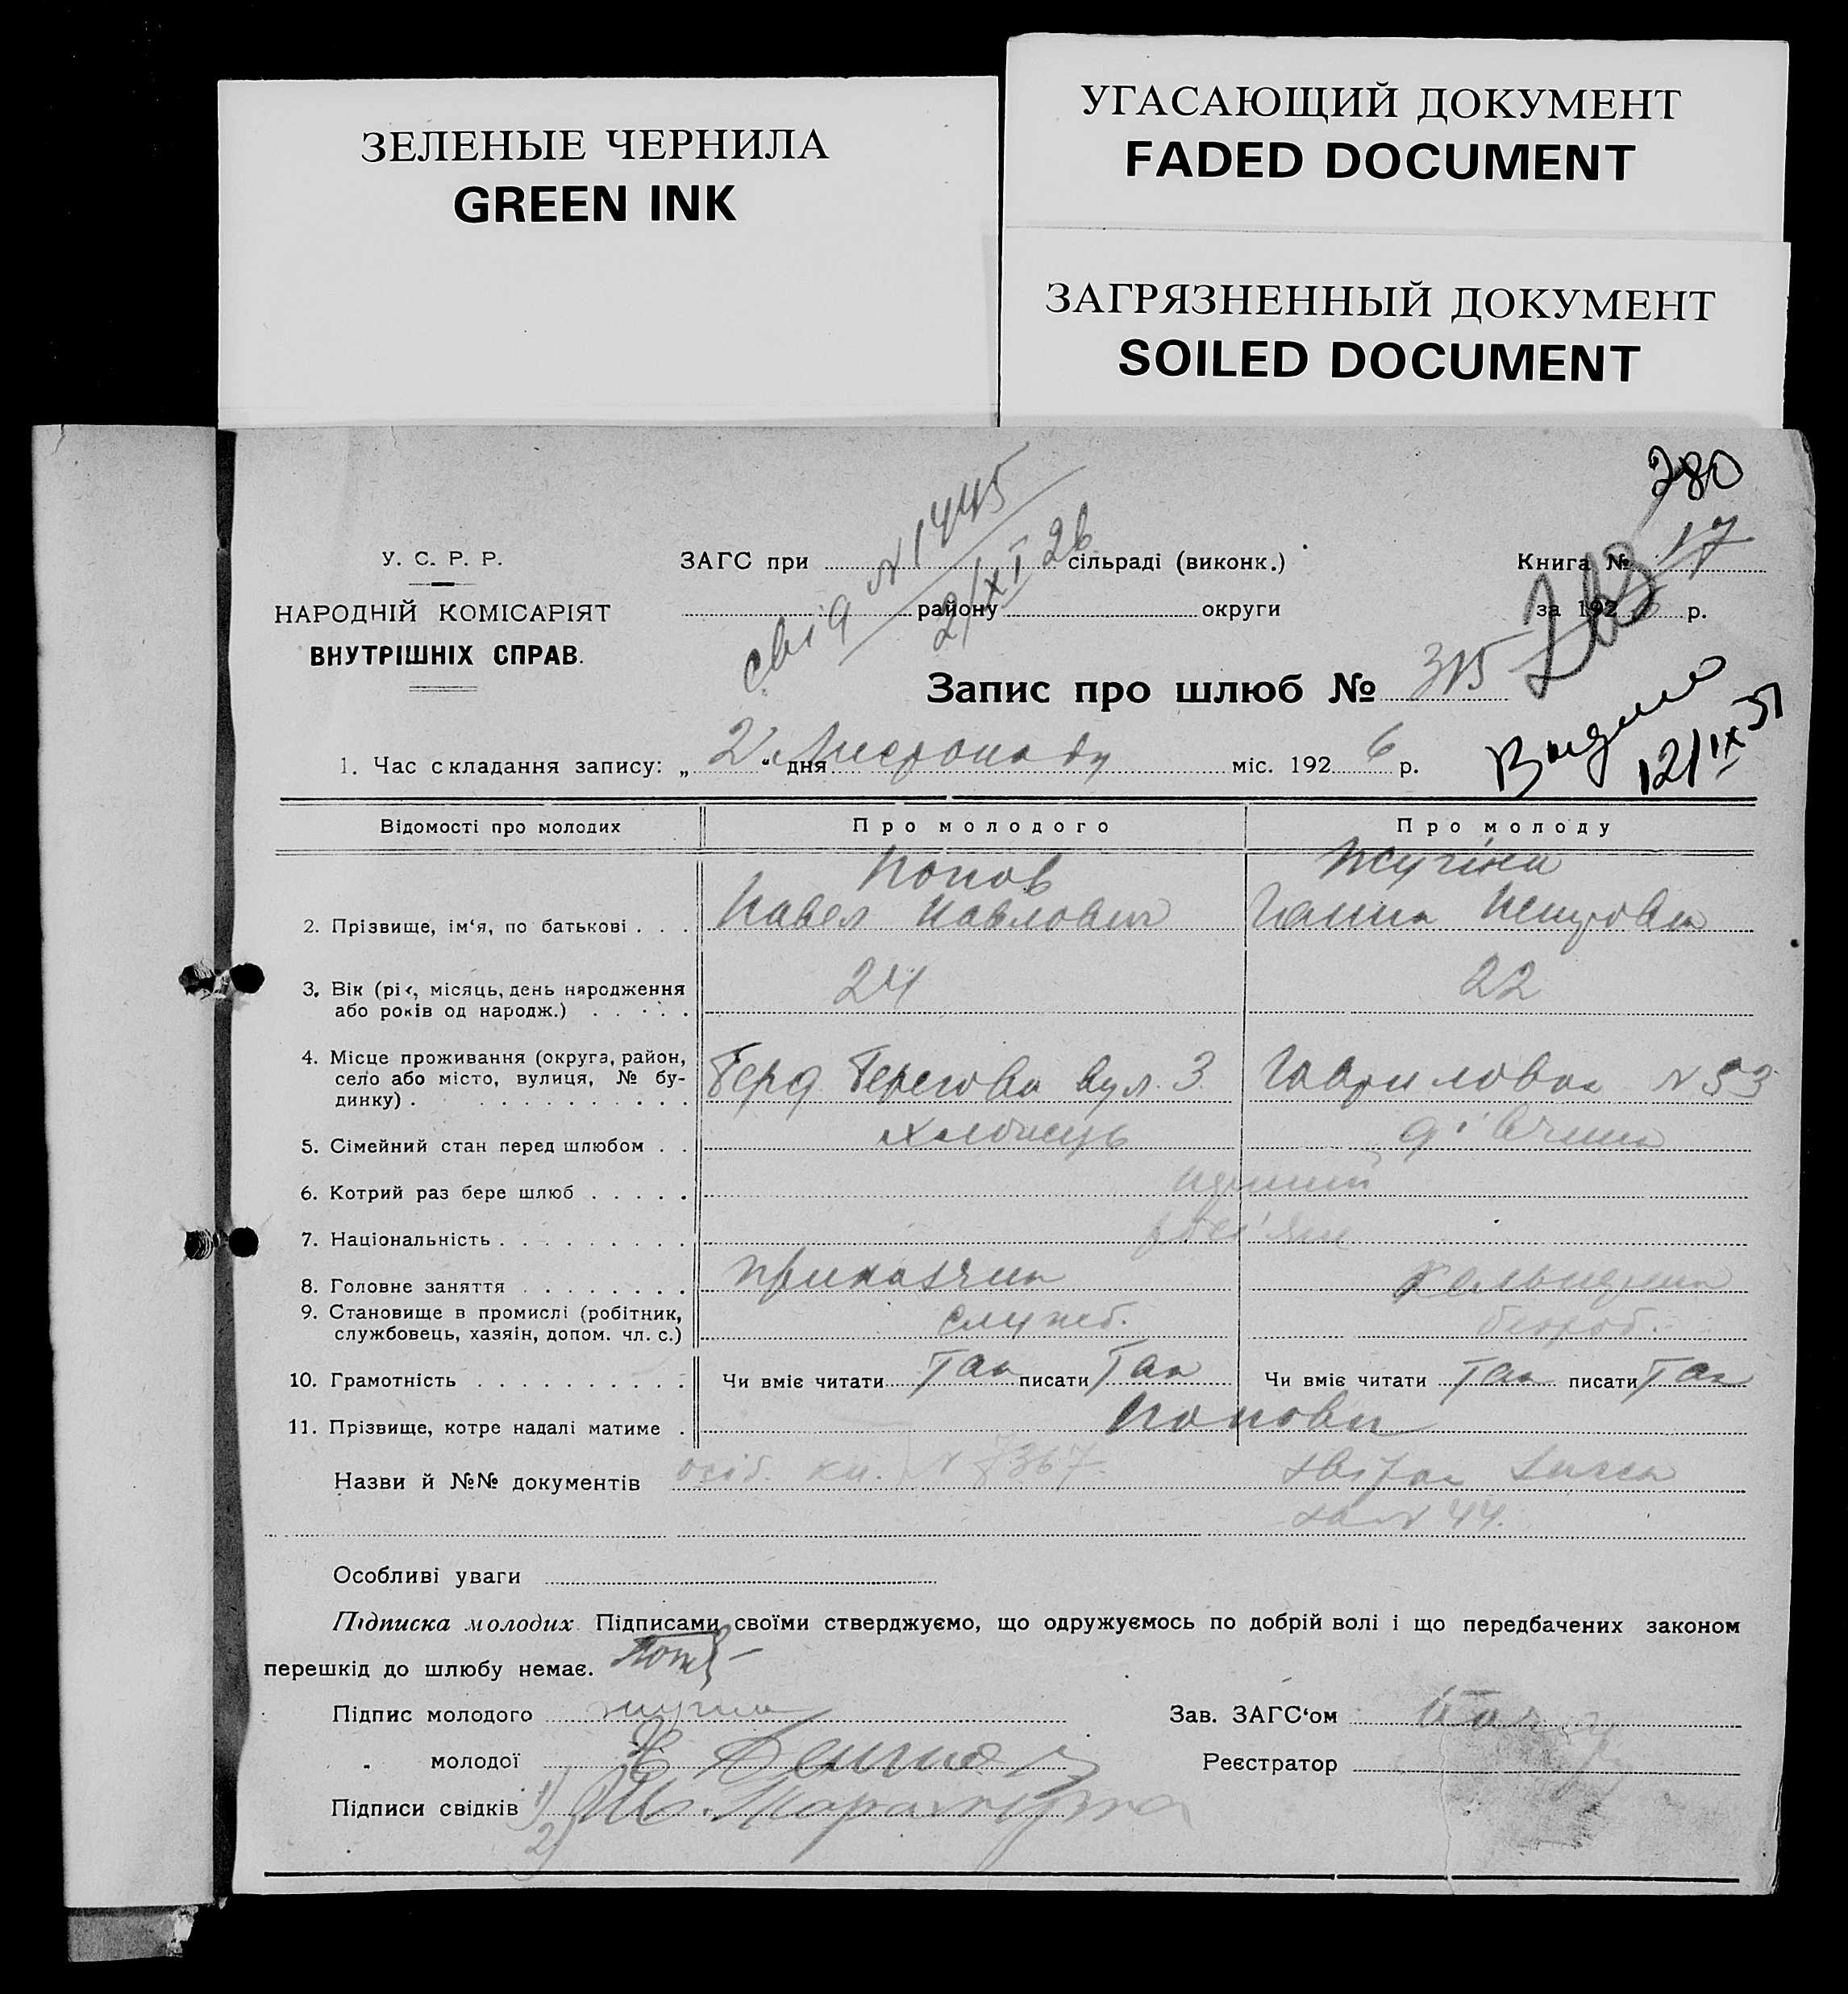 ЗЕЛЕНЫЕ ЧЕРНИЛА
GREEN INK
УГАСАЮЩИЙ ДОКУМЕНТ
FADED DOCUMENT
ЗАГРЯЗНЕННЫЙ ДОКУМЕНТ
SOILED DOCUMENT
280
У. С. Р. Р.
НАРОДНІЙ КОМІСАРІЯТ
ВНУТРІШНІХ СПРАВ.
N 1445
2/XI 26
ЗАГС при сільраді (виконк.)
району округи
Книга № 17
за 192 р.
Запис про шлюб № 315
12/IX 51
1. Час складання запису: „ 2 “ дня Листопаду міс. 192 6 р.
Відомості про молодих Про молодого Про молоду
2. Прізвище, ім‘я, по батькові . . . Попов Павел Павлович
Ганна Петровна
3. Вік (рік, місяць, день народження
або років од народж.) . . . . . 24 22
4. Місце проживання (округа, район,
село або місто, вулиця, № бу-
динку) . Берд. Берегова вул. 3 N 53
5. Сімейний стан перед шлюбом . . хлопець дівчина
6. Котрий раз бере шлюб . . . . . перший
7. Національність . . . . . . . . . росіяне
8. Головне заняття . . . . . . . .
9. Становище в промислі (робітник,
службовець, хазяін, допом. чл. с.) служб. безроб.
10. Грамотність . . . . . . . . . . Чи вміє читати Так писати Так Чи вміє читати Так писати Так
11. Прізвище, котре надалі матиме . Попови
Назви й №№ документів осіб. кн. N 8367
44.
Особливі уваги
Підписка молодих. Підписами своїми стверджуємо, що одружуємось по добрій волі і що передбачених законом
перешкід до шлюбу немає.
Підпис молодого Зав. ЗАГС‘ом
„ молодої Реєстратор
Підписи свідків 1)
2)